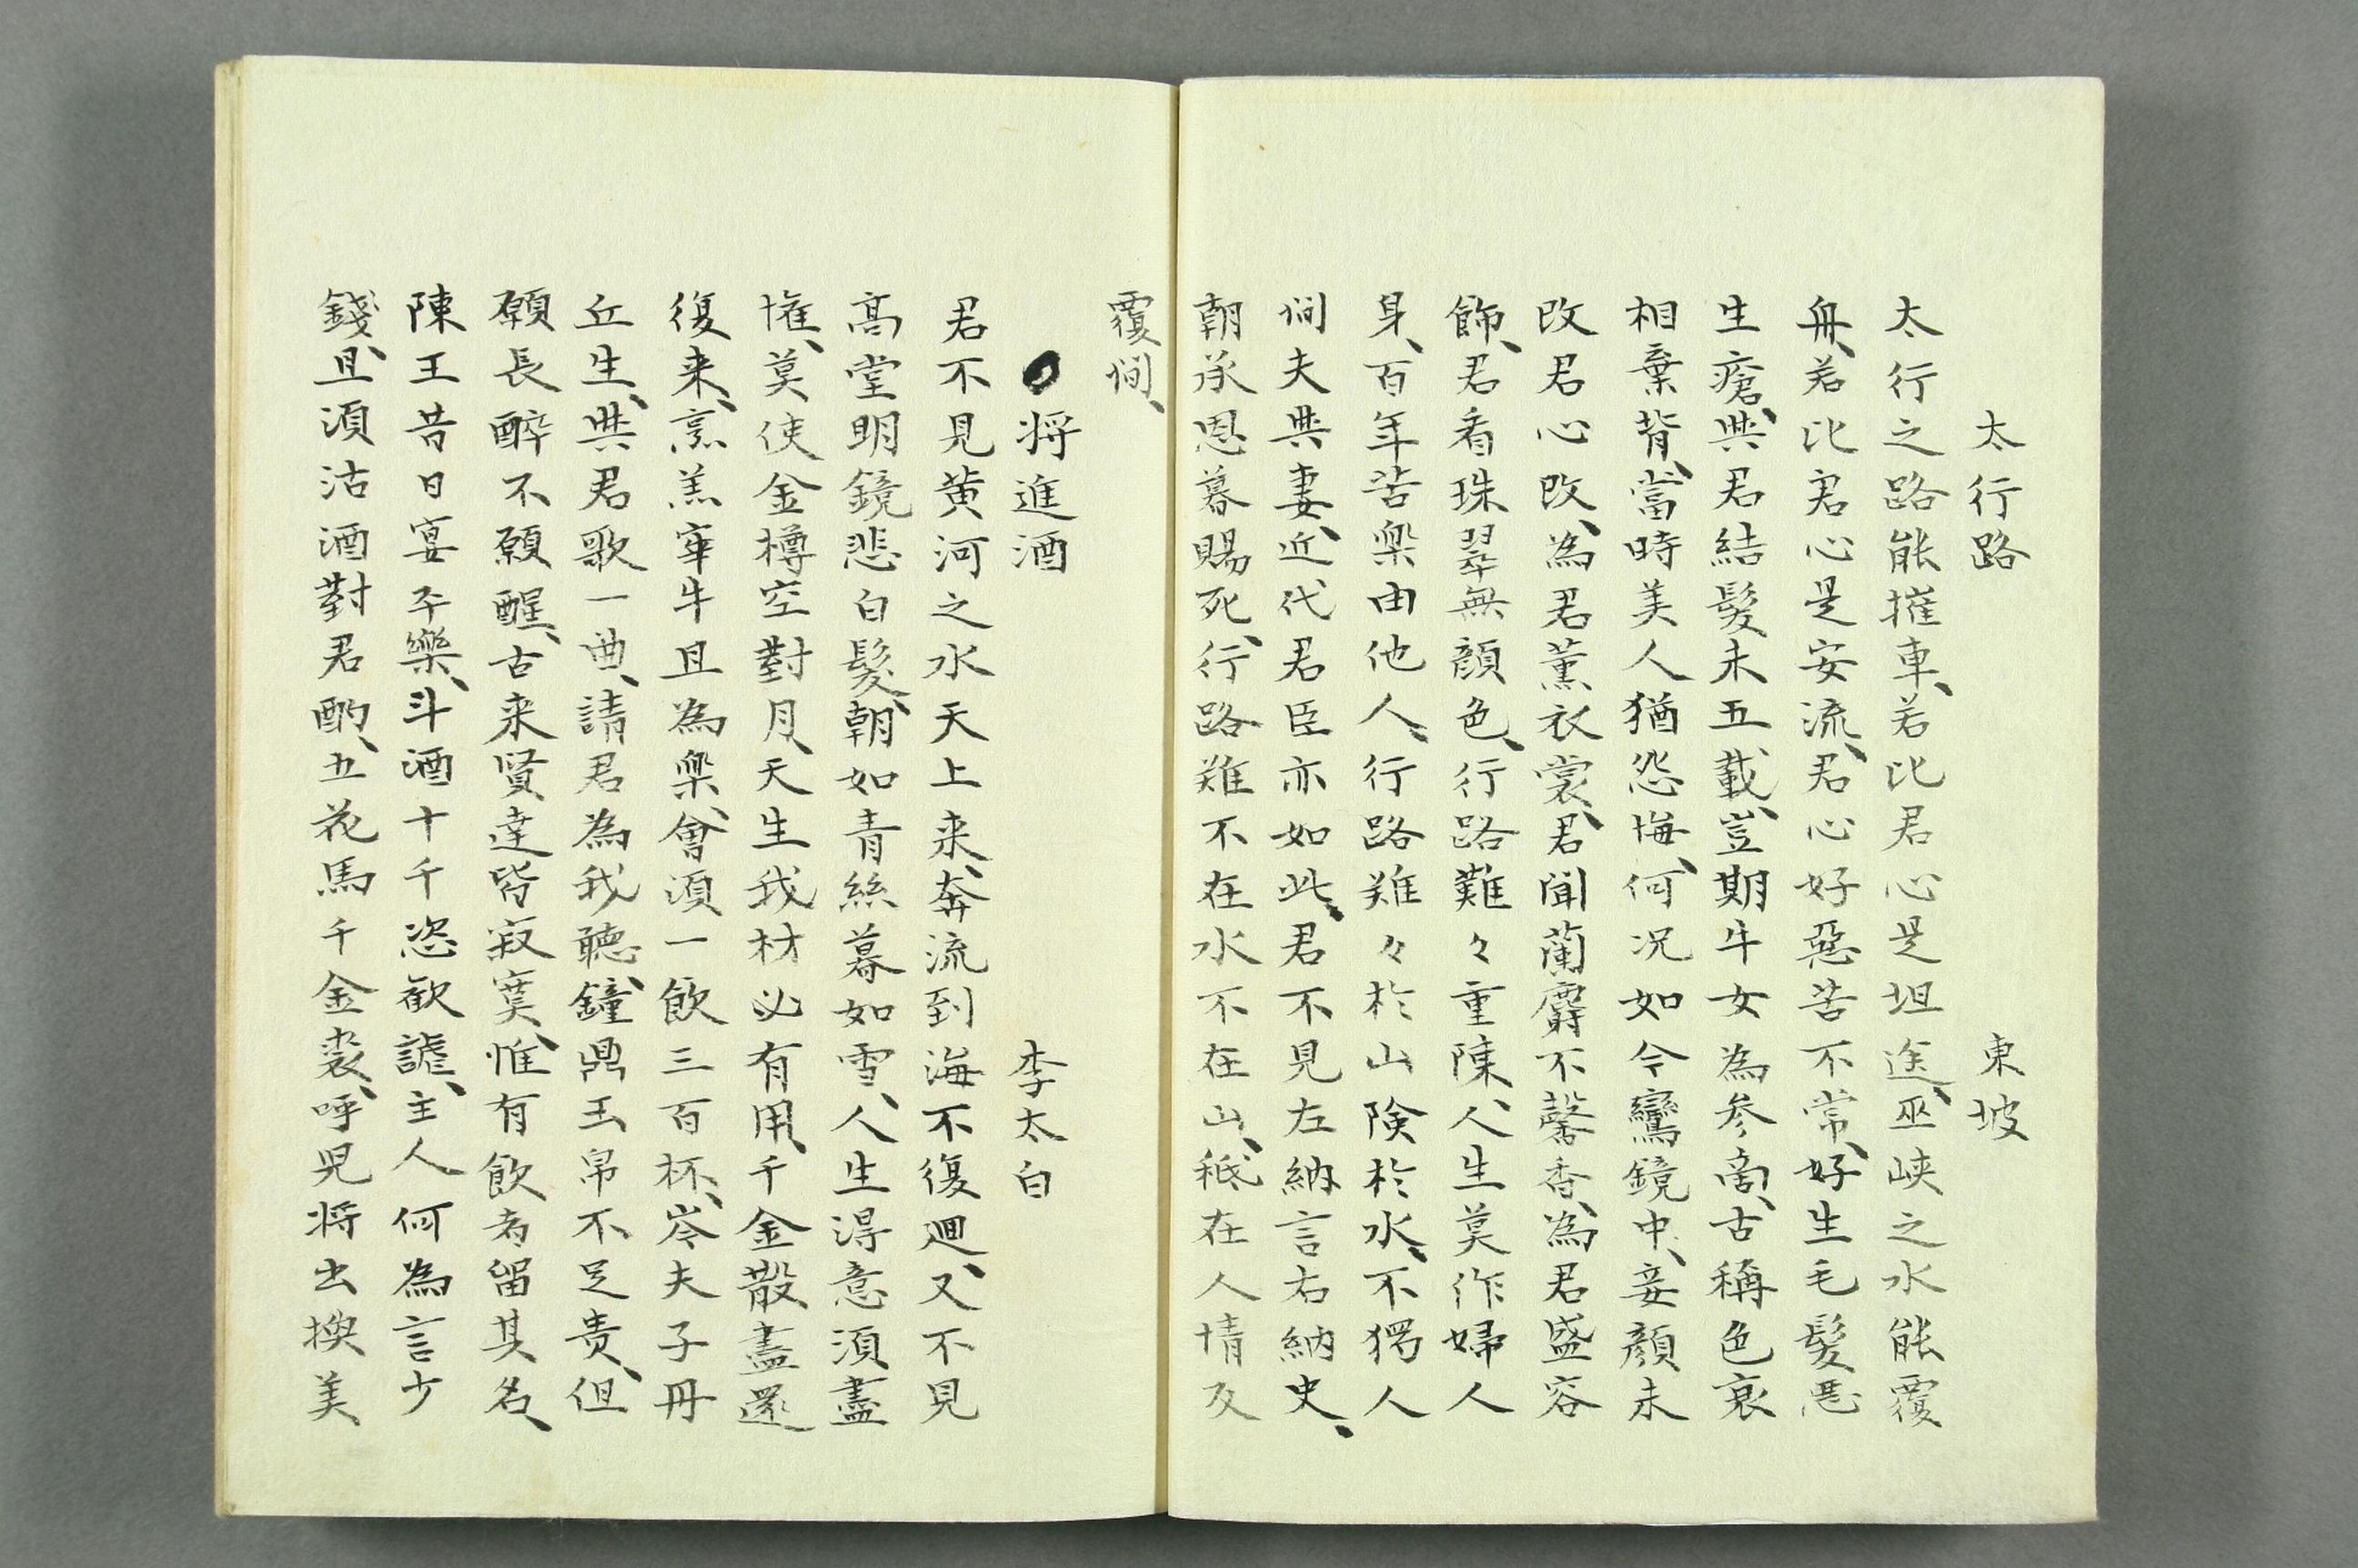 太行路　東坡
太行之路能摧車、若比君心是坦途、巫峡之水能覆
舟、若比君心是安流、君心好惡苦不常、好生毛髮惡
生瘡、與君結髮未五載、豈期牛女為參商、古稱色衰
相棄背、當時美人猶怨悔、何況如今鸞鏡中、妾顔未
改君心改、為君薫衣裳、君聞蘭麝不馨香、為君盛容
飾、君看珠翠無顔色、行路難々重陳、人生莫作婦人
身、百年苦樂由他人、行路難々於山険於水、不獨人
間夫與妻、近代君臣亦如此、君不見左納言右納史、
朝承恩暮賜死、行路難不在水不在山、秖在人情反
覆間、
将進酒　李太白
君不見黄河之水天上来、奔流到海不復廻、又不見
高堂明鏡悲白髮、朝如青絲暮如雪、人生得意須盡
懽、莫使金樽空對月、天生我材必有用、千金散盡還
復来、烹羔宰牛且為樂、會須一飲三百杯、岑夫子丹
丘生、與君歌一曲、請君為我聽、鐘鼎玉帛不足貴、但
願長醉不願醒、古来賢達皆寂寞、惟有飲者留其名、
陳王昔日宴平樂、斗酒十千恣歓謔、主人何為言少
錢、且須沽酒對君酌、五花馬千金裘、呼児将出換美